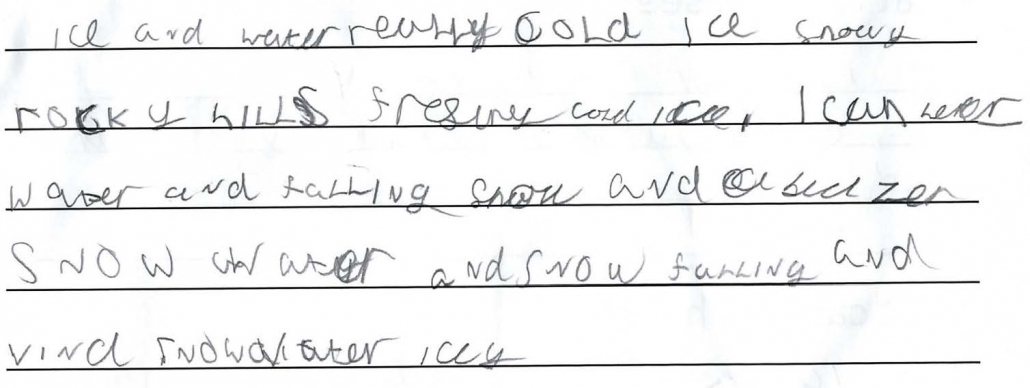 ice and water really COLd ice snowy
rocky hiLLS freginy cold ice, I can herer
water and falling snow and a
SNOW water and snow falling and
vind snow water icey